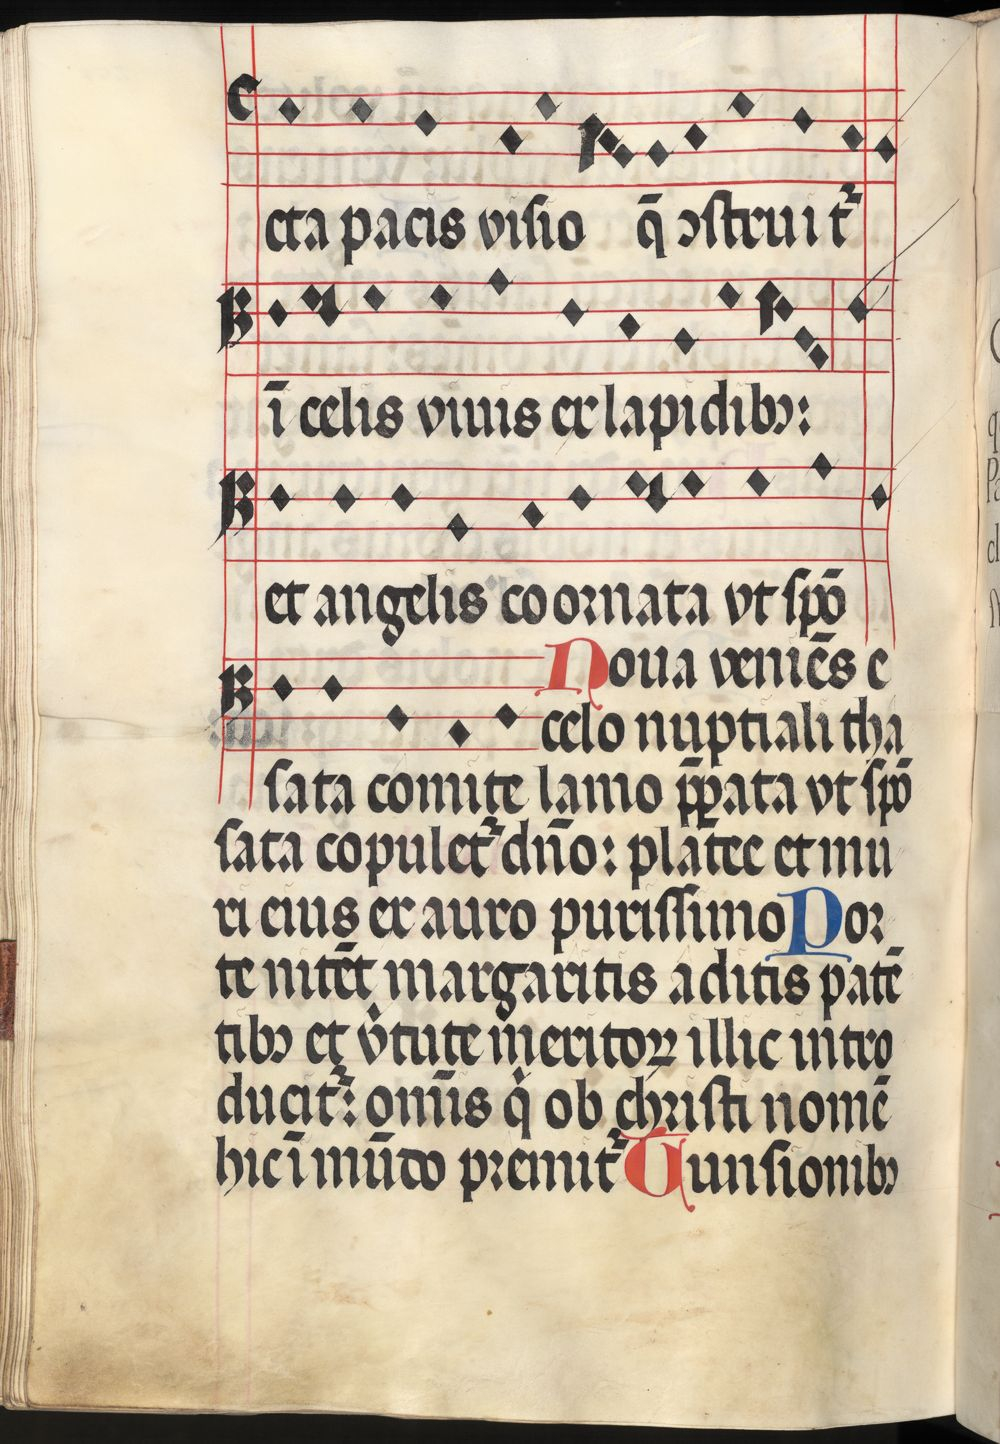 cta pacis visio q̄ ꝯstruit᷑
ī celis viuis ex lapidibꝰ:
et angelis coornata vt spō
Noua veniēs e
celo nuptiali tha
sata comite lamo p̄p̄ata vt spō
sata copulet᷑ dn̄o: platēe et mu
ri eius ex auro purissimo Por
te nitēt margaritis aditis patē
tibꝰ et v̾tute meritoꝝ illic intro
ducit᷑: omīs qͥ ob christi nomē
hic ī mūdo premit᷑ Tunsionibꝰ